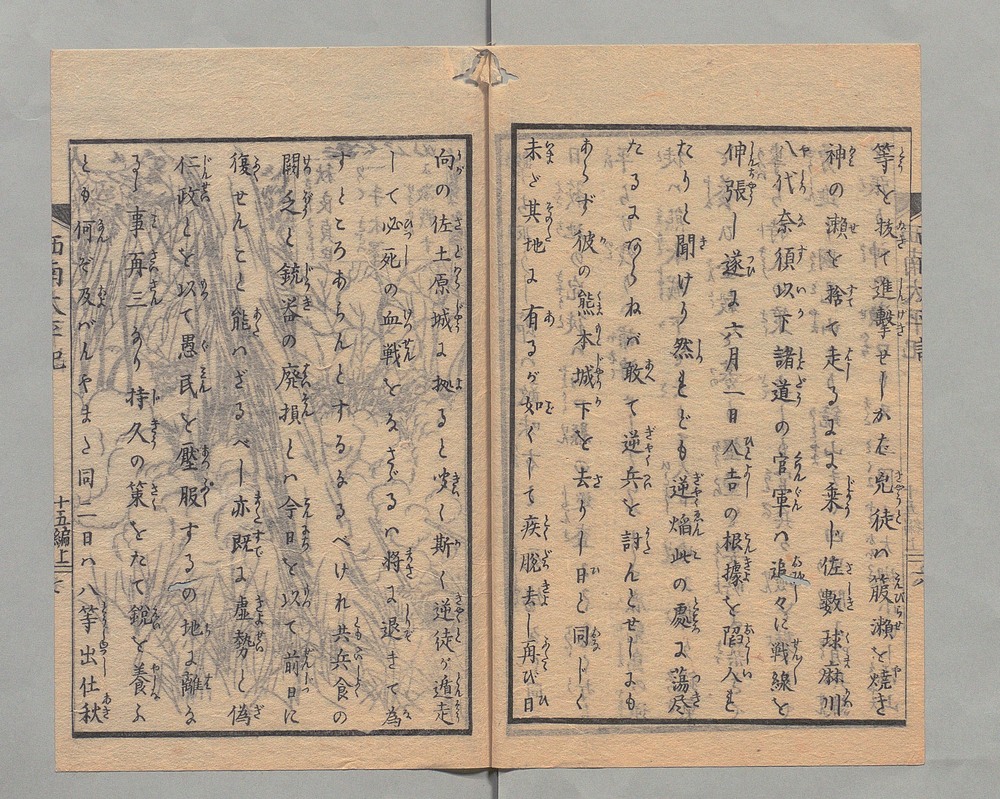 等を抜て進撃せしかば兇徒ハ箙瀬を焼き
神の瀬を捨て走るにより乗じ佐敷球麻川
八代奈須以下諸道の官軍ハ追々に戦線を
伸張し遂に六月一日人吉の根據を陥入も
たりと聞けり然れども逆焔此の處に蕩尽
たるにあらねバ敢て逆兵を討んとせしにも
あらず彼の熊本城下を去りし日と同じく
未ざ其地に有るが如くして疾脱去し再び日
向の佐土原城に拠ると男し斯く逆徒が遁走
して必死の血戦をなさゞるハ将に退きて為
すところあらんとするなるべけれ共兵食の
闕乏と銃器の廃損とハ今日を以て前日に
復せんこと能ハざるべし亦既に虚勢と偽
仁政とを以て愚民を壓服するの地に離な
るし事再三あり持久の策をたて鋭を養ふ
とも何ぞ及バんやまた同二日ハ八等出仕秋
西南太平記
十五編上